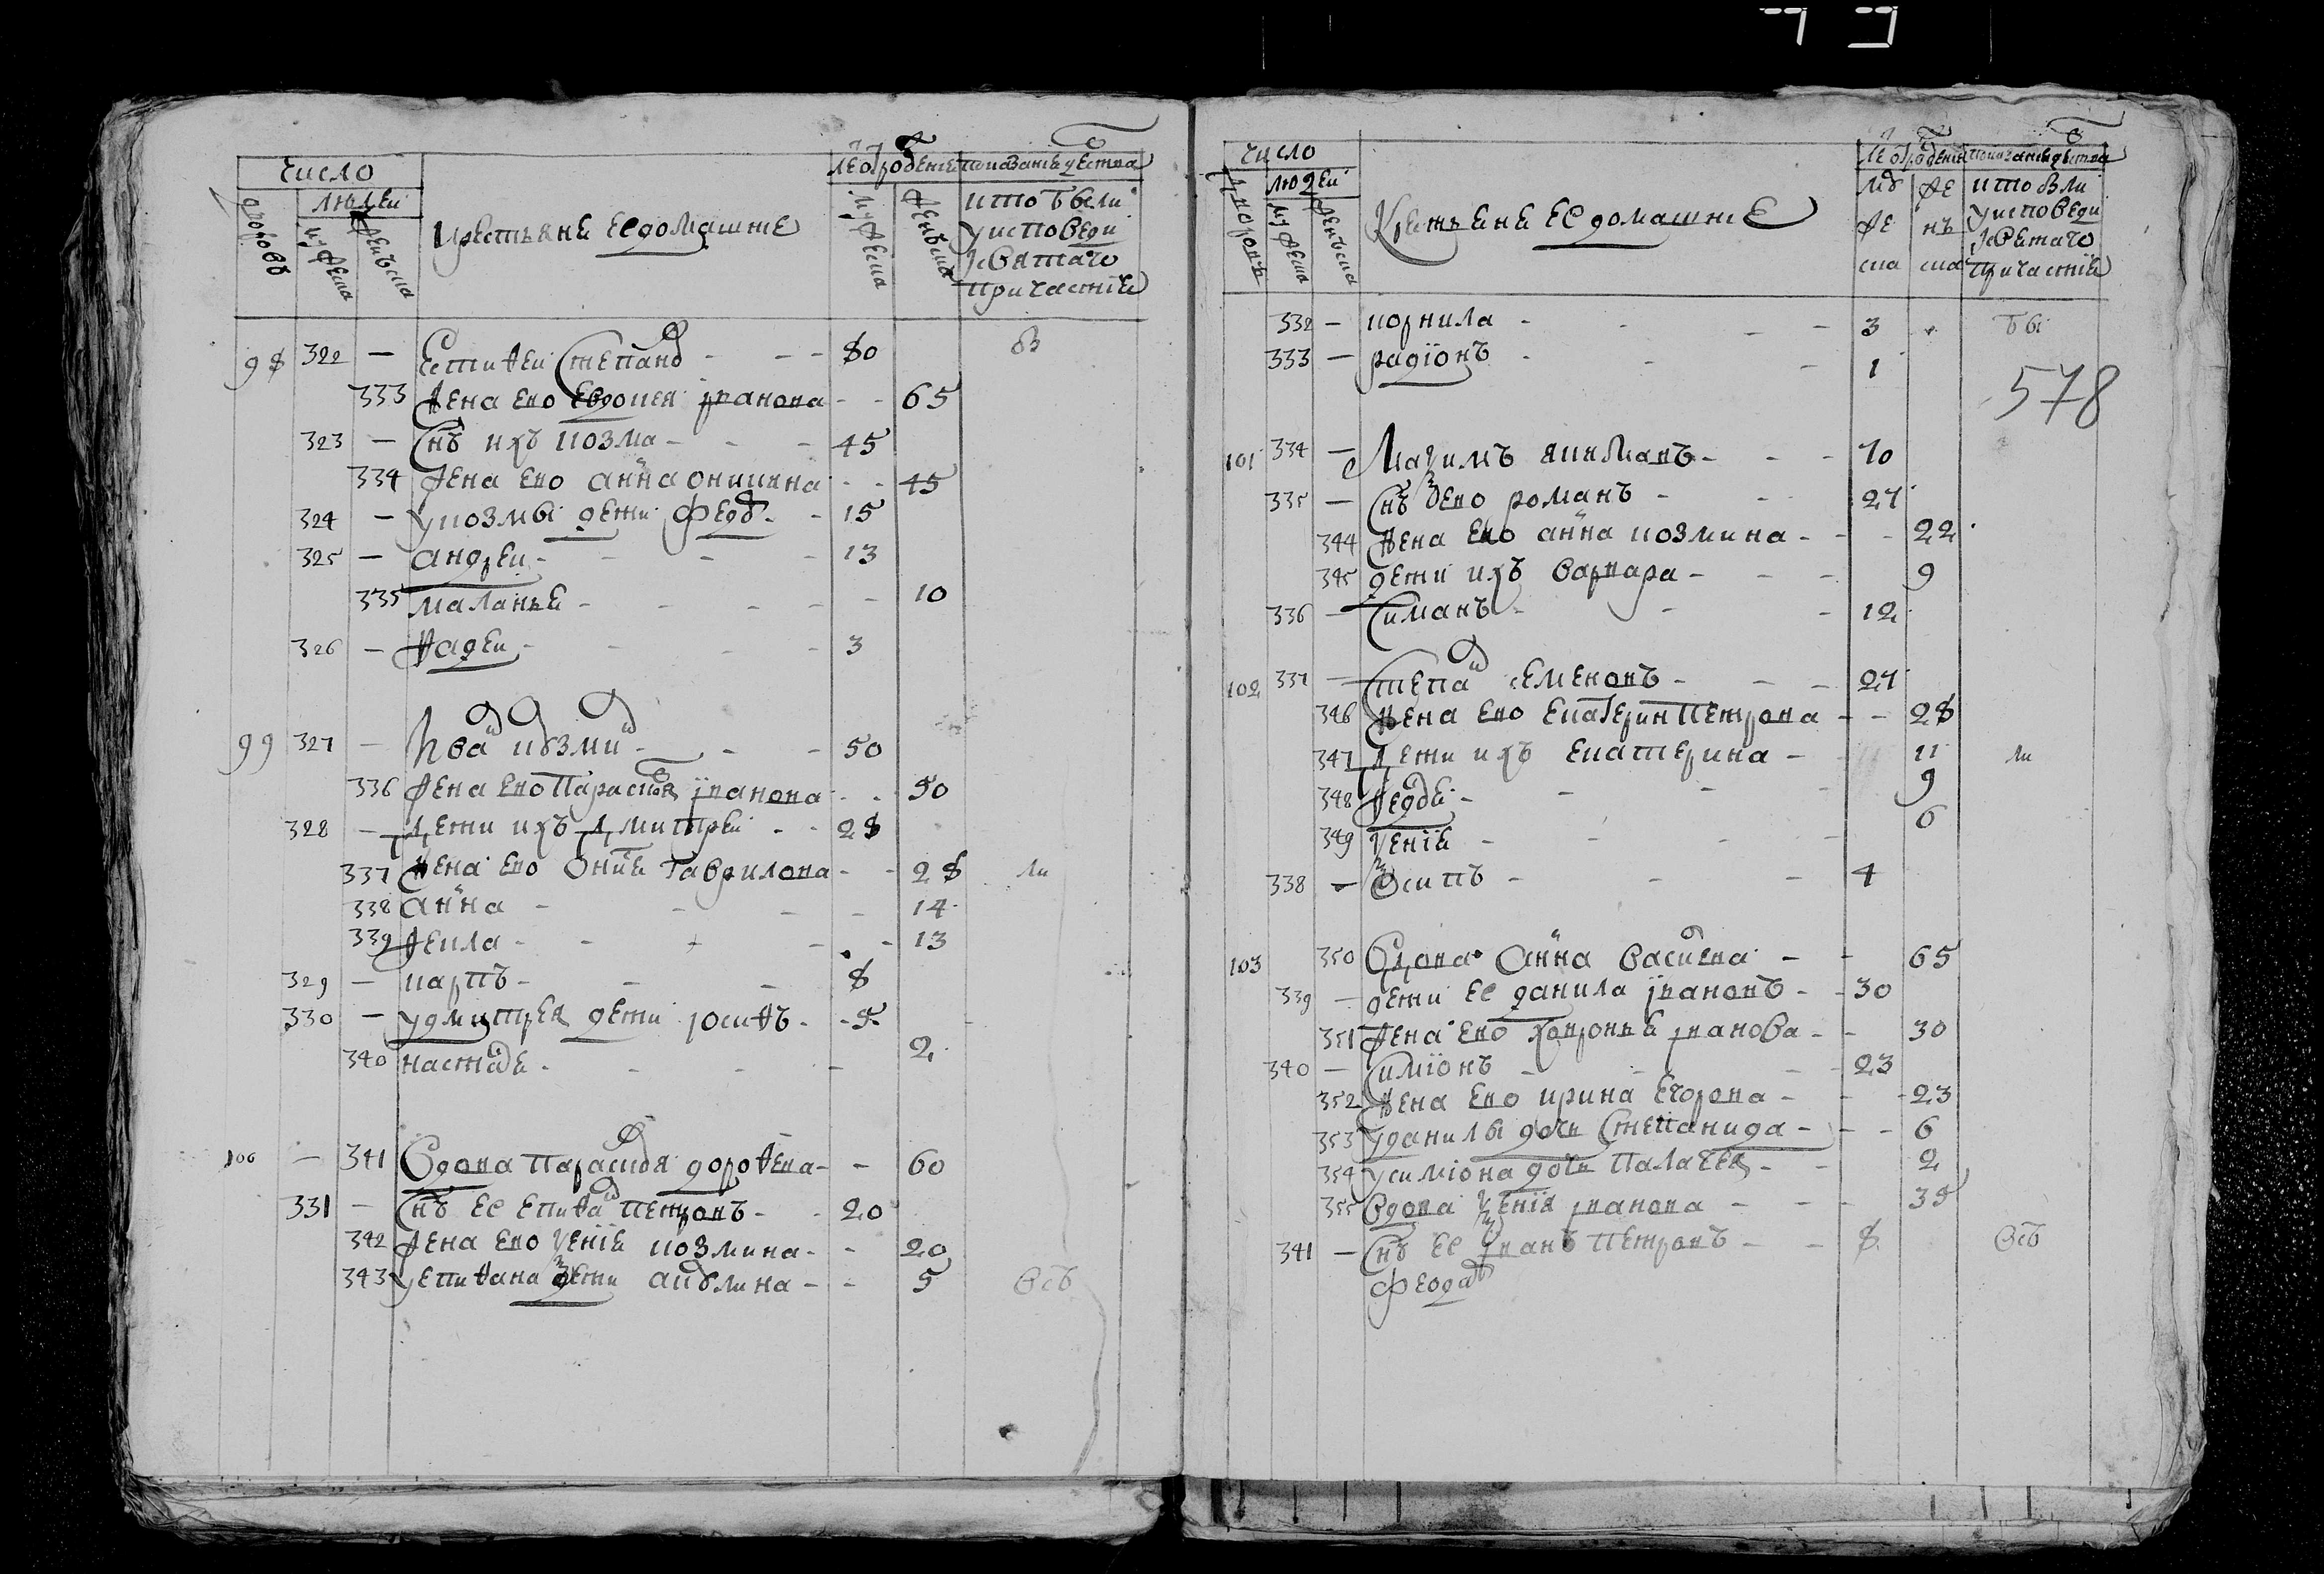 число
людей
дворовъ
мужеска
женъска
крестьяне ея домашние
лета от рождения
мужеска
женъска
показание действа
кто был
у исповеди
и святаго
причастия
98 322 — Естифей Степанов - - - 80
333 жена ево Евдокея Иванова - - 65
323 — Снъ ихъ козма - - - 45
334 жена ево анна оникина - - 45
324 — у козмы дети федо - - 15
325 — андреи - - - 13
335 маланья - - - - - 10
326 — фадеи - - - 3
99 327 — Иван козмин - - - 50
336 жена ево Парасков Иванова - - 50
328 — дети ихъ дмитреи - - 28
337 жена ево Гаврилова - - 28 ли
338 анна - - - - 14
339 фекла - - - - 13
329 — карпъ - - - 8
330 — у дмитрея дети иосифъ - - 5
340 настасья - - - - 2
100 — 341 Вдова парасковя дорофева - - 60
331 — Снъ ее епифан петровъ - - 20
342 жена ево ксения козмина - - 20
343 у епифана дети акулина - - 5 всъ
число
людей
дворовъ
мужеска
женъска
Крестьяне ее домашние
лета от рождения
му
же
ска
же
нъ
ска
показание действа
кто были
у исповеди
и святаго
причастия
332 — корнила - - - - 3 бы
333 — радионъ - - 1
578
101 334 — Максимъ - - - 70
335 — Снъ ево романъ - - 27
344 жена ево анна козмина - - - 22
345 дети ихъ варвара - - - 9
336 — Симанъ - - - 12
102 337 — Степан семеновъ - - - 27
346 жена ево екатерин Петрова - - 28
347 дети ихъ екатерина - 11 ли
348 федося - - - - 9
349 ксения - - - - 6
338 — Осипъ - - - 4
103 350 Вдова анна васильевна - - 65
339 — дети ее данила ивановъ - - 30
351 жена ево ховронья иванова - - 30
340 — Симионъ - - - 23
352 жена ево ирина егорова - - - 23
353 у данилы дочь Степанида - - - 6
354 у симиона дочь палагея - - 2
355 вдова ксения иванова - - - 35
341 — Снъ ее иванъ петровъ - - 8 всъ